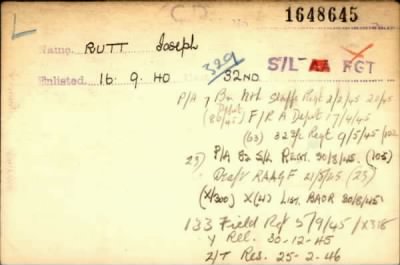 1648645
Name. RUTT Joseph
329
Enlisted. 16. 9. 40 32ND S/L RGT
P/A 7 Bn Nth Staffs Regt 2/2/45 21/45
(86/45) F/R A Depot 17/4/45
(63) 32 S/L Regt 9/5/45
25) P/A 82 S/L Regt. 30/3/45. (105)
Draft RAAGF 21/5/45 (25)
(X/300) X(4) List. BAOR 30/8/45
133 Field Rgt 5/9/45 /X318
Y Rel. 30-12-45
Z/T Res. 25-2-46